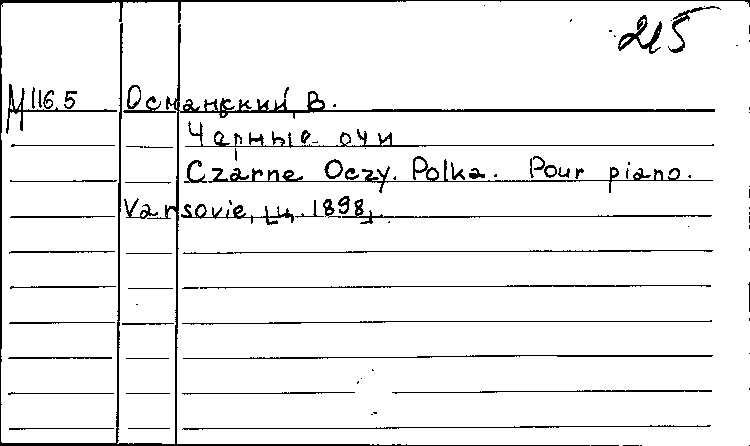 215
М 116.5 Османский, В.
Черные очи
Czarne Oczy. Polka. Pour piano.
Varsovie, [ц. 1898].